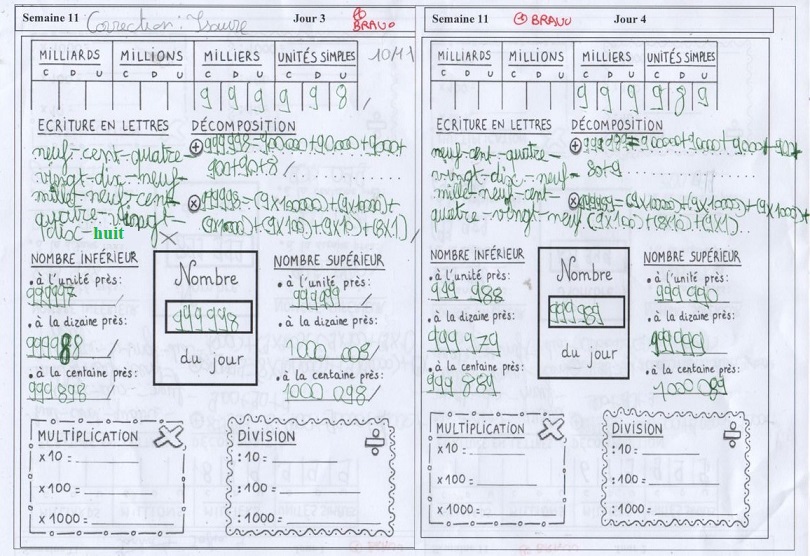 Semaine 11 Correction : Isaure Jour 3 BRAVO
MILLIARDS MILLIONS MILLIERS UNITÉS SIMPLES 10/11
C D U C D U C D U C D U
9 9 9 9 9 8
ECRITURE EN LETTRES DÉCOMPOSITION
neuf-cent-quatre-
vingt-dix-neuf-
mille-neuf-cent-
quatre-vingt-
dix-huit
+ 999998=900000+90000+9000+
900+90+8
x 999998=(9x100000)+(9x10000)+
(9x1000)+(9x100)+(9x10)+(8x1)
NOMBRE INFÉRIEUR
• à l'unité près:
999997
• à la dizaine près:
999988
• à la centaine près:
999 898
Nombre
999 998
du jour
NOMBRE SUPÉRIEUR
• à l'unité près:
999999
• à la dizaine près:
1000 008
• à la centaine près:
1000 098
MULTIPLICATION
x10 =
x100 =
x1000 =
DIVISION
:10=
:100=
:1000=
Semaine 11 BRAVO Jour 4
MILLIARDS MILLIONS MILLIERS UNITÉS SIMPLES
C D U C D U C D U C D U
9 9 9 9 8 9
ECRITURE EN LETTRES DÉCOMPOSITION
neuf-cent-quatre-
vingt-dix-neuf-
mille-neuf-cent-
quatre-vingt-neuf
+
80+9
x
(9x100)+(8x10)+(9x1)
NOMBRE INFÉRIEUR
• à l'unité près:
999 988
• à la dizaine près:
999 979
• à la centaine près:
999 889
Nombre
999 989
du jour
NOMBRE SUPÉRIEUR
• à l'unité près:
999 990
• à la dizaine près:
• à la centaine près:
1000 089
MULTIPLICATION
x10 =
x100 =
x1000=
DIVISION
:10=
:100=
:1000=